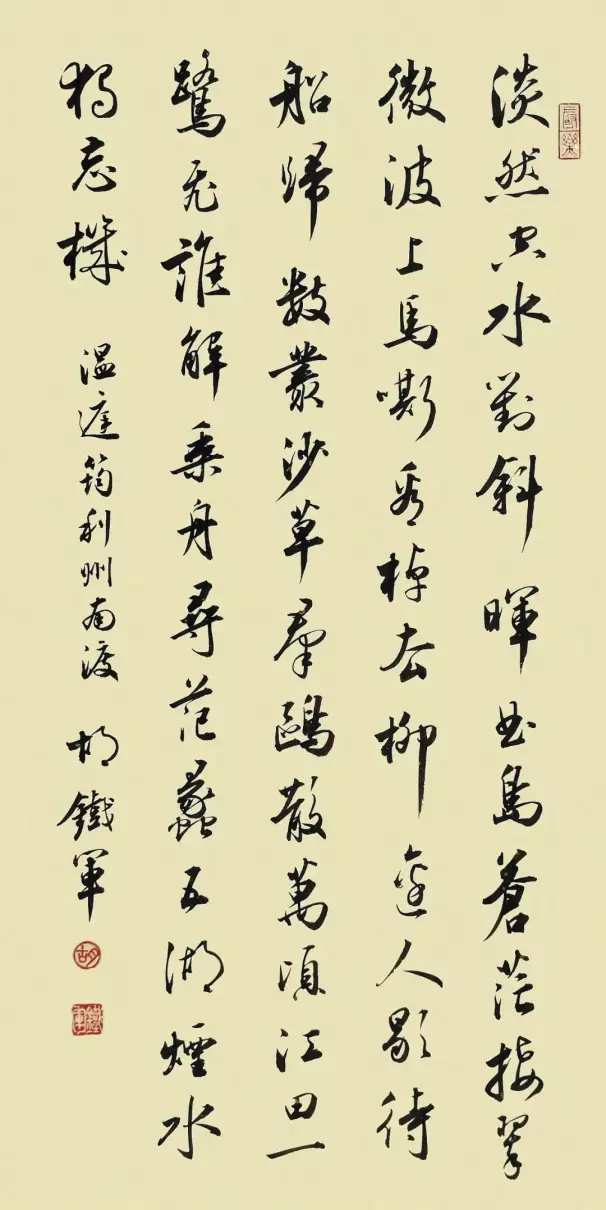 淡然空水對斜暉曲島蒼茫接翠
微波上馬嘶看棹去柳邊人歇待
船歸數叢沙草羣鷗散萬頃江田一
鷺飛誰解乘舟尋范蠡五湖煙水
獨忘機 温庭筠利州南渡 胡鐵軍
胡
鐵軍